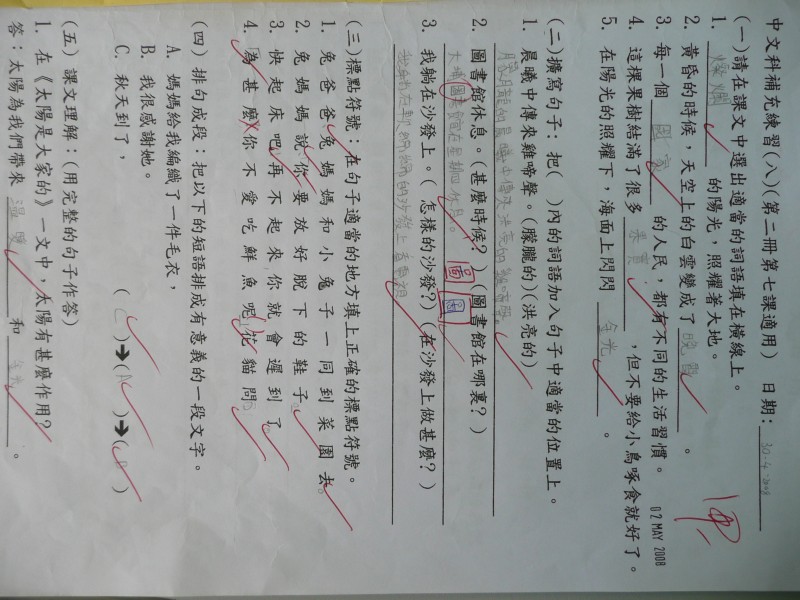 中文科補充練習(八)(第二冊第七課適用) 日期：30-4-2008
(一)請在課文中選出適當的詞語填在橫線上。
1. 燦爛 的陽光，照耀著大地。
2. 黃昏的時候，天空上的白雲變成了 晚霞 。
3. 每一個 國家 的人民，都有不同的生活習慣。 02 MAY 2008
4. 這棵果樹結滿了很多 果實 ，但不要給小鳥啄食就好了。
5. 在陽光的照耀下，海面上閃閃 金光 。
(二)擴寫句子：把( )內的詞語加入句子中適當的位置上。
1. 晨曦中傳來雞啼聲。(朦朧的)(洪亮的)
朦朧的晨曦中傳來洪亮的雞啼聲。
2. 圖書館休息。(甚麼時候？)(圖書館在哪裏？)
圖
3. 我躺在沙發上。( 怎樣的沙發？)(在沙發上做甚麼？)
(三)標點符號：在句子適當的地方填上正確的標點符號。
1. 兔爸爸兔媽媽和小兔子一同到菜園去。
2. 兔媽媽說你要放好脫下的鞋子
3. 快起床吧再不起來你就會遲到了
4. 為甚麼你不愛吃鮮魚呢花貓問
(四) 排句成段：把以下的短語排成有意義的一段文字。
A. 媽媽給我編織了一件毛衣，
B. 我很感謝她。
C. 秋天到了，
( C )→( A )→( B )
(五) 課文理解：(用完整的句子作答)
1. 在《太陽是大家的》一文中，太陽有甚麼作用？
答：太陽為我們帶來 溫暖 和 金光 。